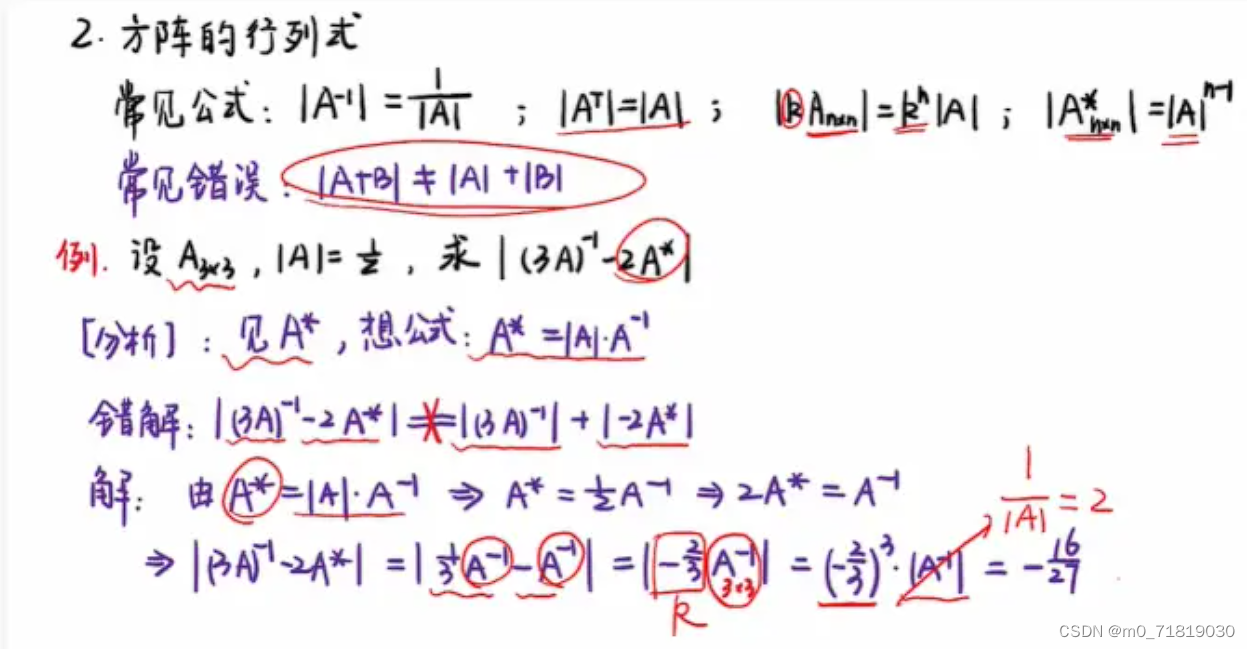 2. 方阵的行列式
常见公式: |A⁻¹| = 1/|A| ; |Aᵀ|=|A| ; |kAₙₓₙ|=kⁿ|A| ; |A*ₙₓₙ|=|A|ⁿ⁻¹
常见错误: |A+B| ≠ |A|+|B|
例. 设 A₃ₓ₃, |A|= 1/2, 求 |(3A)⁻¹-2A*|
[分析]: 见A*, 想公式: A* =|A|·A⁻¹
错解: |(3A)⁻¹-2A*| = |(3A)⁻¹| + |-2A*|
解: 由 A*=|A|·A⁻¹ ⇒ A* = 1/2 A⁻¹ ⇒ 2A* = A⁻¹
1/|A| = 2
⇒ |(3A)⁻¹-2A*| = |1/3 A⁻¹ - A⁻¹| = |-2/3 A⁻¹| = (-2/3)³·|A⁻¹| = -16/27
3×3
k
CSDN @m0_71819030